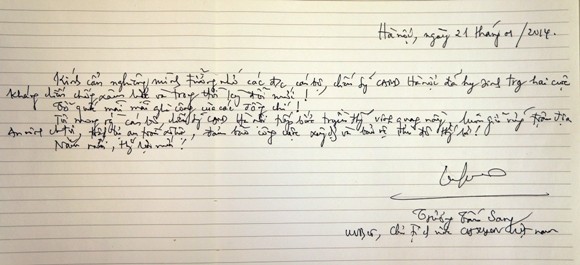 Hà nội, ngày 21 tháng 01/2014.
Kính cẩn nghiêng mình tưởng nhớ các đ/c cán bộ, chiến sỹ CAND Hà nội đã hy sinh trong hai cuộc
kháng chiến chống xâm lược và trong thời kỳ đổi mới!
Tổ quốc mãi mãi ghi công của các đồng chí!
Tôi mong cán bộ, chiến sỹ CAND Hà nội tiếp bước truyền thống vinh quang này, luôn giữ vững trận địa
An ninh chính trị, trật tự an toàn xã hội, đảm bảo công cuộc xây dựng và bảo vệ thủ đô
Năm mới, thắng lợi mới!
Trương Tấn Sang
UVBCT, Chủ tịch nước CHXHCN Việt nam